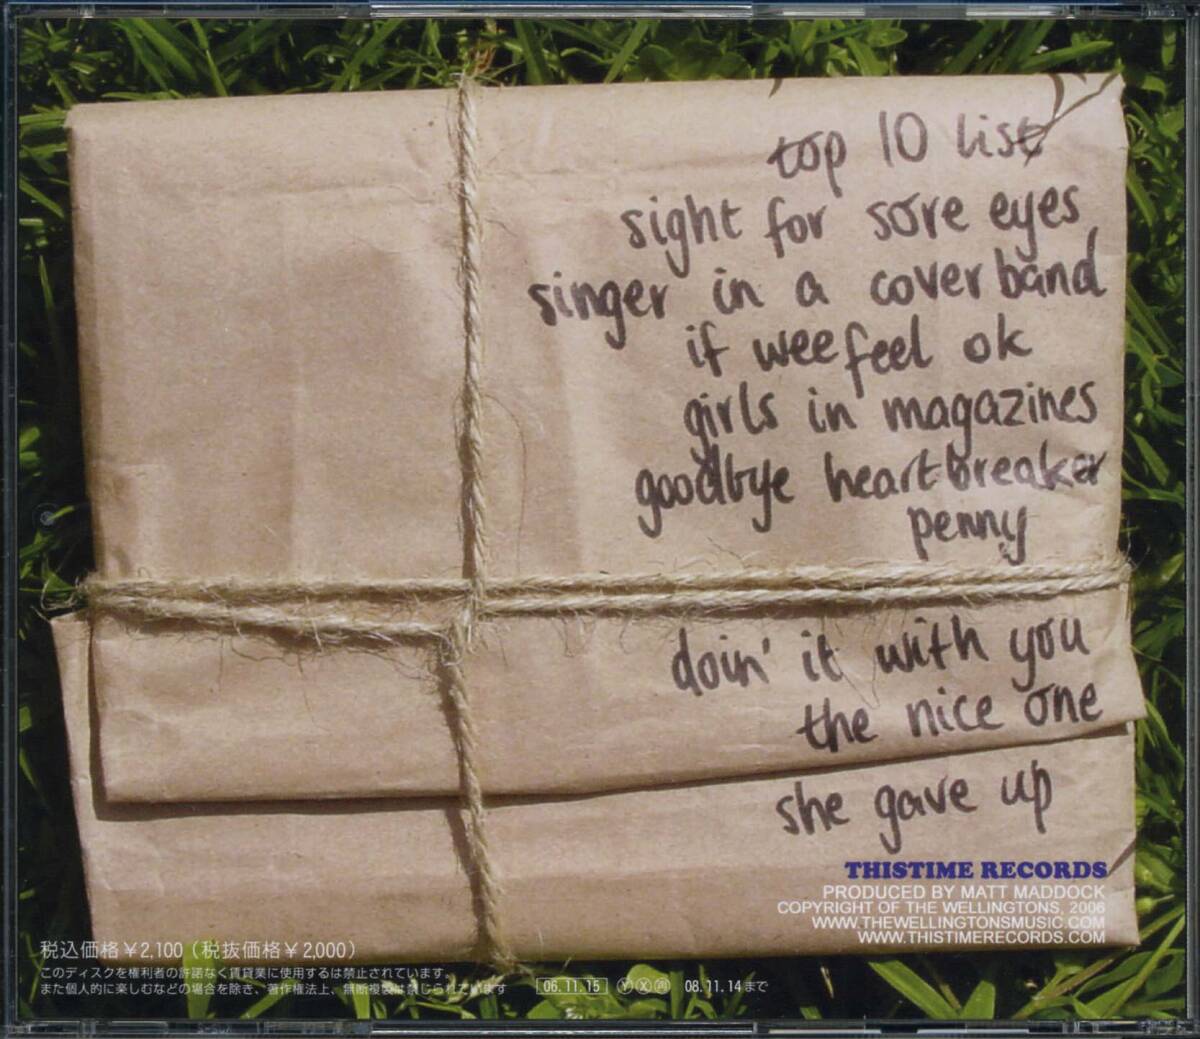 top 10 list
sight for sore eyes
singer in a cover band
if wee feel ok
girls in magazines
goodbye heartbreaker
penny
doin' it with you
the nice one
she gave up
THISTIME RECORDS
PRODUCED BY MATT MADDOCK
COPYRIGHT OF THE WELLINGTONS, 2006
WWW.THEWELLINGTONSMUSIC.COM
WWW.THISTIMERECORDS.COM
税込価格￥2,100（税抜価格￥2,000）
このディスクを権利者の許諾なく賃貸業に使用するは禁止されています。
また個人的に楽しむなどの場合を除き、著作権法上、無断複製は禁じられています
06.11.15 Ⓨ Ⓧ 08.11.14まで